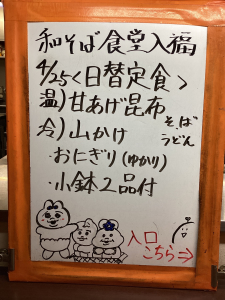 和そば食堂入福
4/25<日替定食>
温)甘あげ昆布
冷)山かけ
そば
うどん
・おにぎり(ゆかり)
・小鉢2品付
入口
こちら⇒